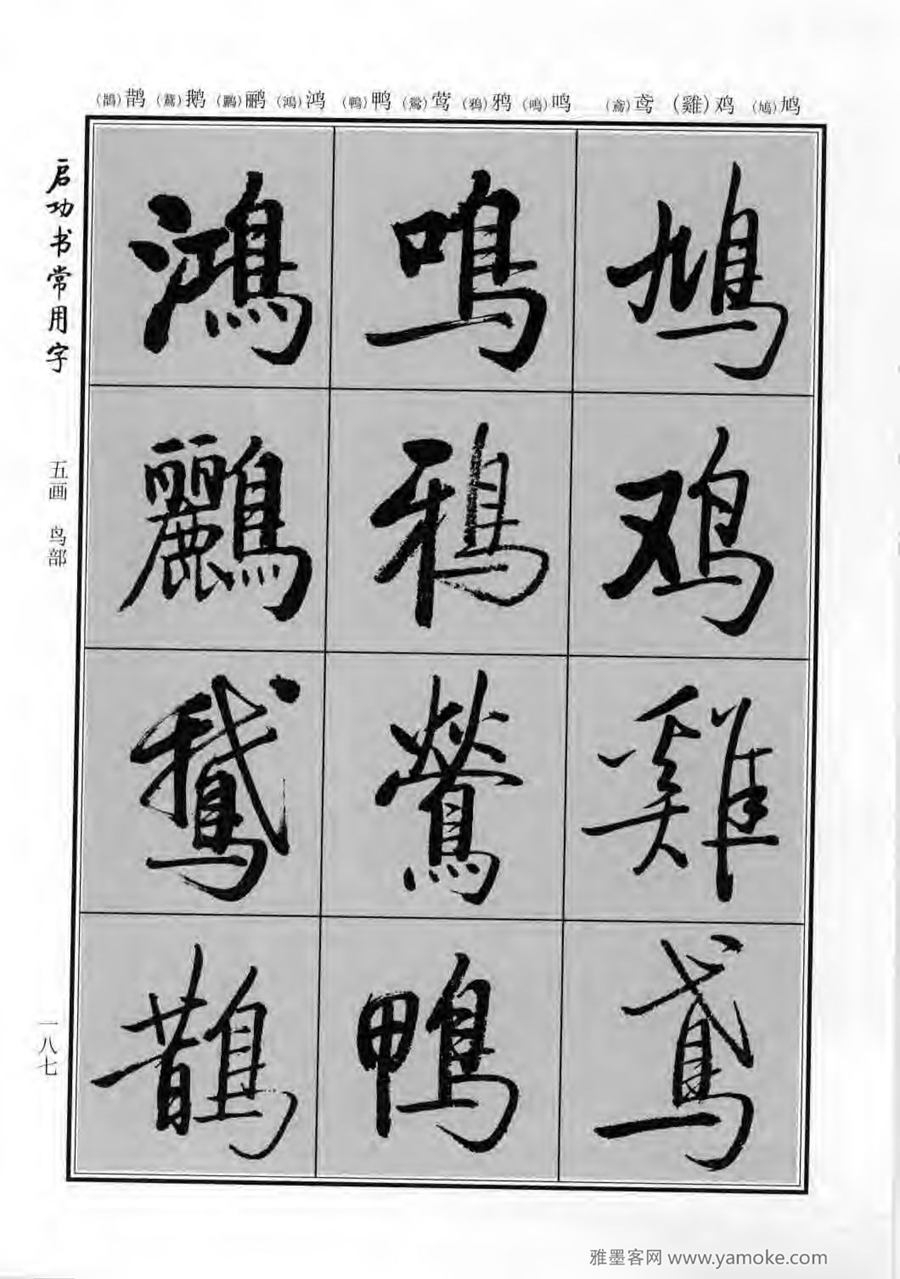 (鵲)鹊 (鵞)鹅 (鸝)鹂 (鴻)鸿 (鴨)鸭 (鶯)莺 (鴉)鸦 (鳴)鸣 (鳶)鸢 (雞)鸡 (鳩)鸠
启功书常用字
五画 鸟部
一八七
鳩
鸡
雞
鳶
鳴
鴉
鶯
鴨
鴻
鸝
鵞
鵲
雅墨客网 www.yamoke.com